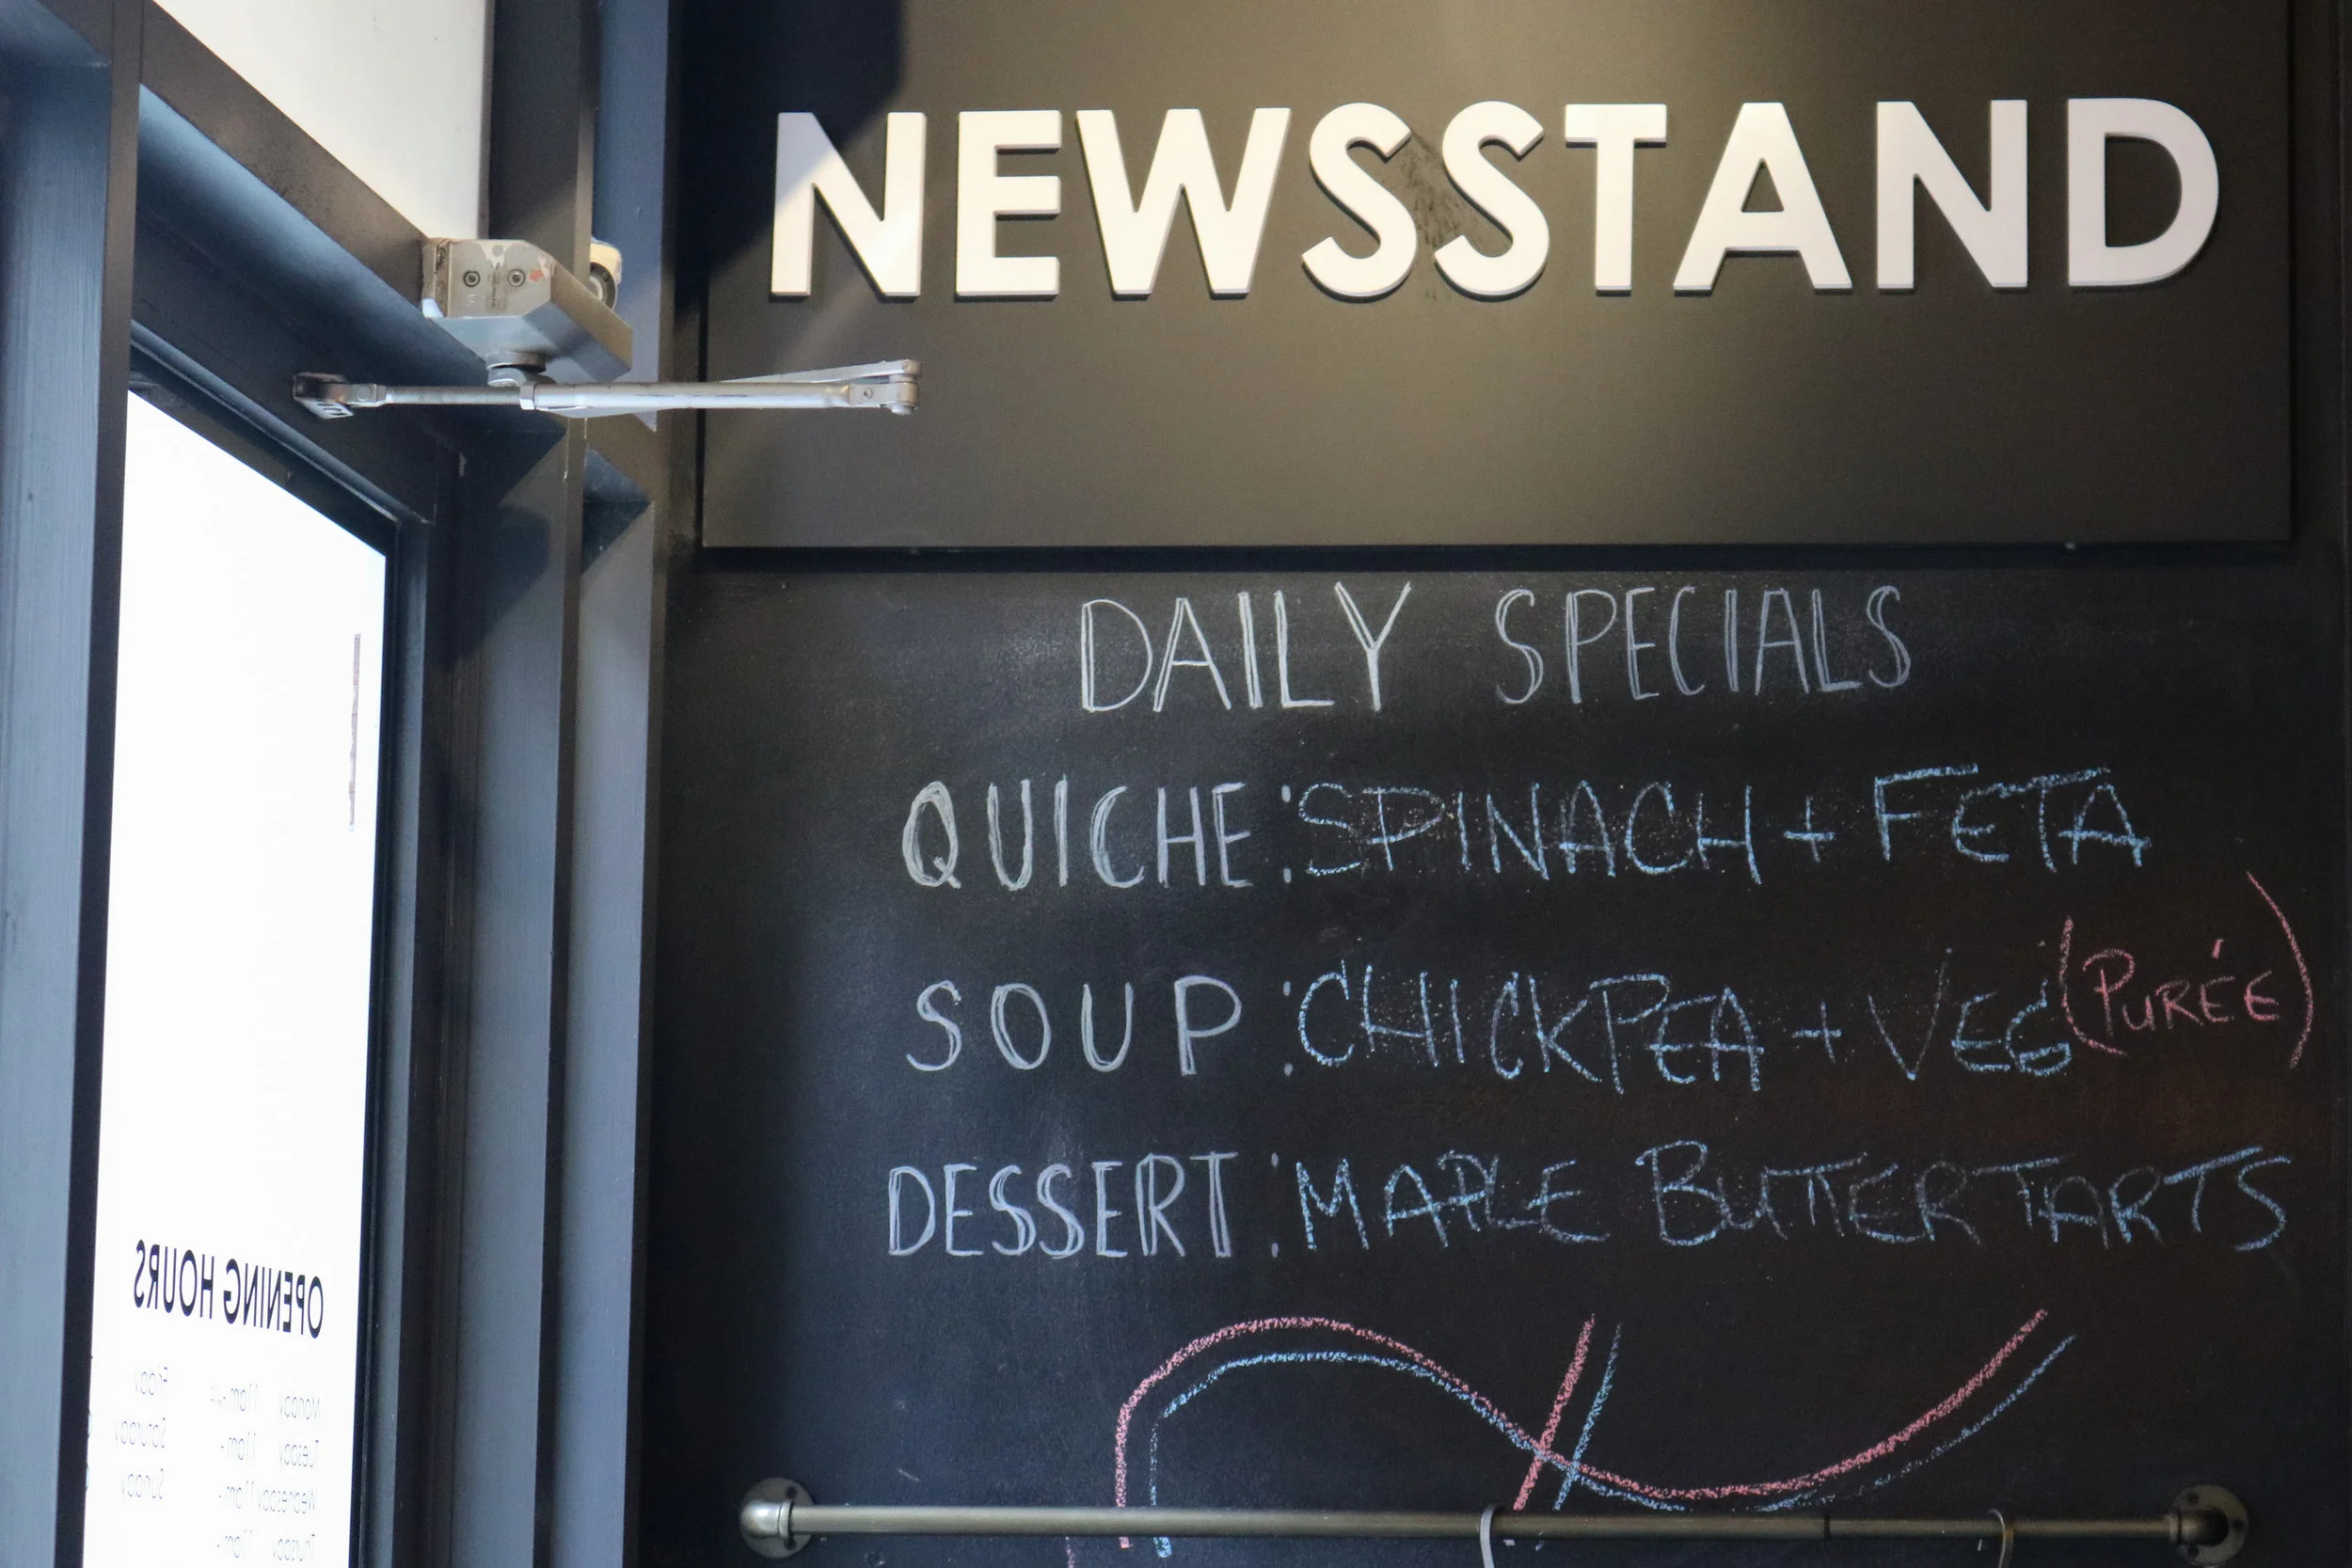 NEWSSTAND
DAILY SPECIALS
QUICHE: SPINACH + FETA
SOUP: CHICKPEA + VEG (PURÉE)
DESSERT: MAPLE BUTTER TARTS
OPENING HOURS
Monday 11am- Friday
Tuesday 11am- Saturday
Wednesday 11am- Sunday
Thursday 11am-